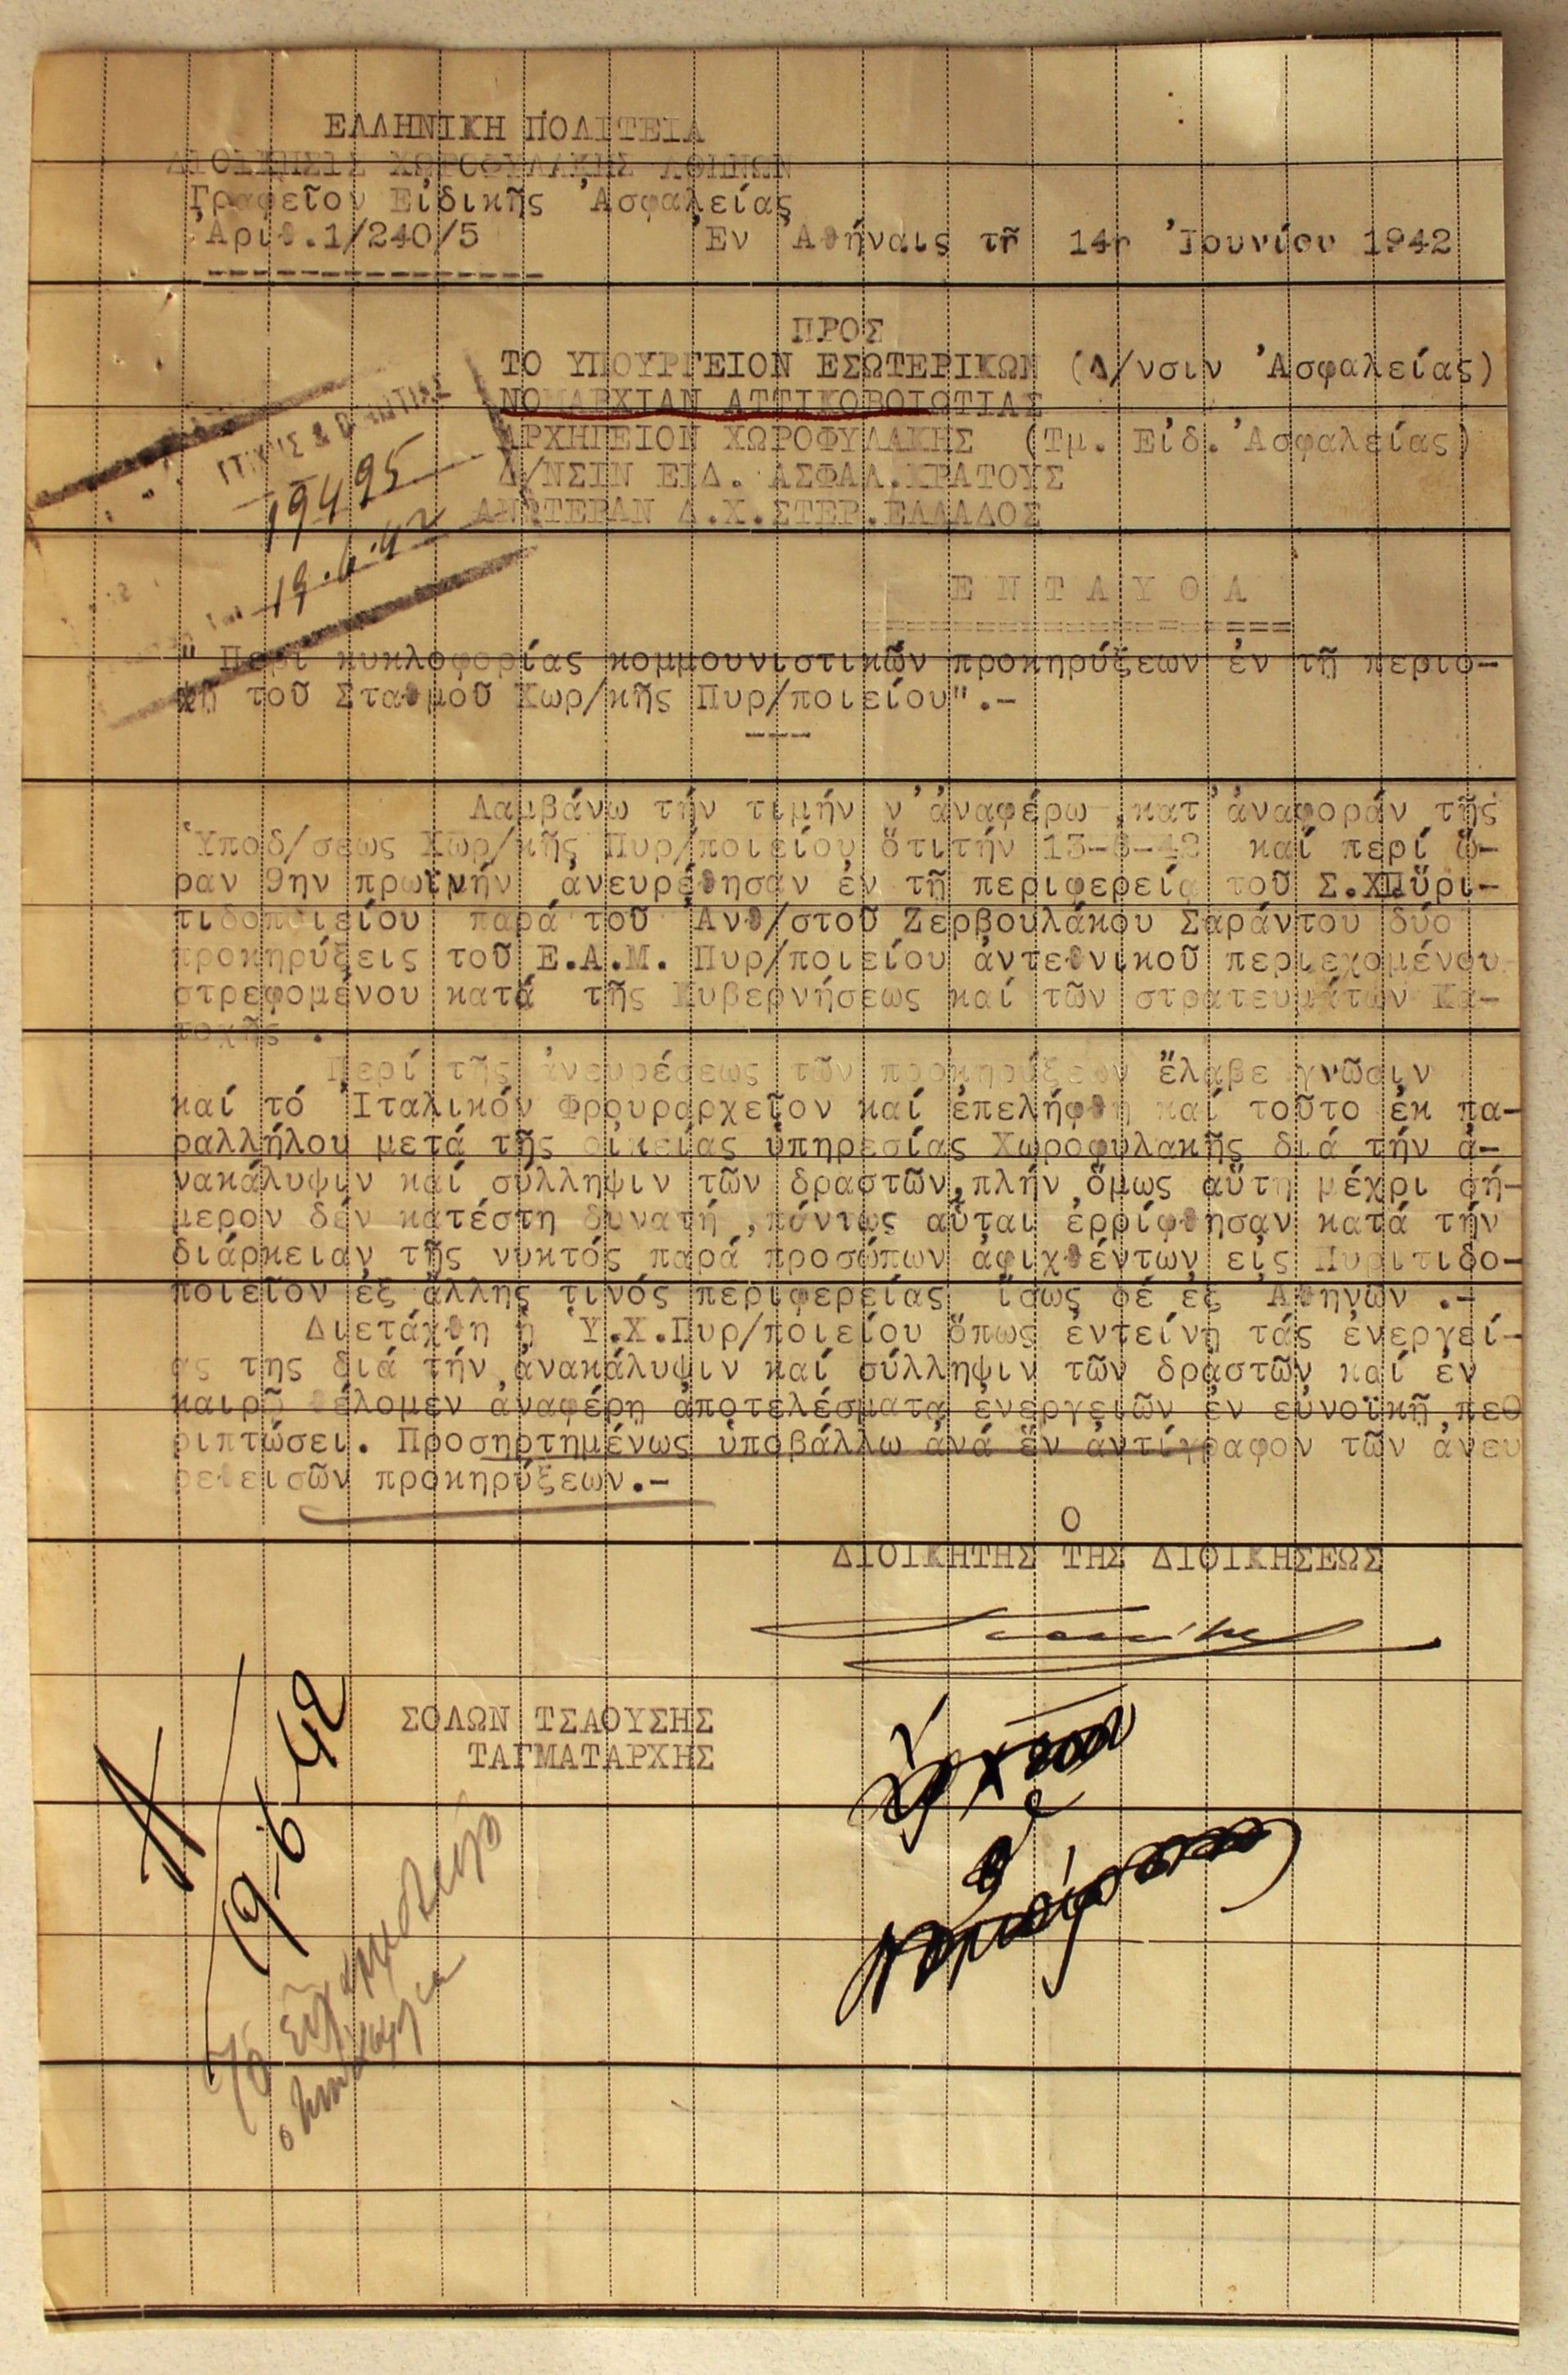 ΕΛΛΗΝΙΚΗ ΠΟΛΙΤΕΙΑ
ΔΙΟΙΚΗΣΙΣ ΧΩΡΟΦΥΛΑΚΗΣ ΑΘΗΝΩΝ
Γραφεῖον Εἰδικῆς Ἀσφαλείας
Ἀριθ.1/240/5 Ἐν Ἀθήναις τῇ 14η Ἰουνίου 1942
ΠΡΟΣ
ΤΟ ΥΠΟΥΡΓΕΙΟΝ ΕΣΩΤΕΡΙΚΩΝ (Δ/νσιν Ἀσφαλείας)
ΝΟΜΑΡΧΙΑΝ ΑΤΤΙΚΟΒΟΙΩΤΙΑΣ
ΑΡΧΗΓΕΙΟΝ ΧΩΡΟΦΥΛΑΚΗΣ (Τμ. Εἰδ. Ἀσφαλείας)
Δ/ΝΣΙΝ ΕΙΔ. ΑΣΦΑΛ.ΚΡΑΤΟΥΣ
ΑΝΩΤΕΡΑΝ Δ.Χ.ΣΤΕΡ.ΕΛΛΑΔΟΣ
19495
19.6.42
Ε Ν Τ Α Υ Θ Α
" Περί κυκλοφορίας κομμουνιστικῶν προκηρύξεων ἐν τῇ περιο-
χῇ τοῦ Σταθμοῦ Χωρ/κῆς Πυρ/ποιείου".-
Λαμβάνω τήν τιμήν ν'ἀναφέρω ,κατ'ἀναφοράν τῆς
Ὑποδ/σεως Χωρ/κῆς Πυρ/ποιείου ὅτιτήν 13-6-42 καί περί ὥ-
ραν 9ην πρωϊνήν ἀνευρέθησαν ἐν τῇ περιφερείᾳ τοῦ Σ.ΧΠυρι-
τιδοποιείου παρά τοῦ Ἀνθ/στοῦ Ζερβουλάκου Σαράντου δύο
προκηρύξεις τοῦ Ε.Α.Μ. Πυρ/ποιείου ἀντεθνικοῦ περιεχομένου
στρεφομένου κατά τῆς Κυβερνήσεως καί τῶν στρατευμάτων Κα-
τοχῆς .
Περί τῆς ἀνευρέσεως τῶν προκηρύξεων ἔλαβε γνῶσιν
καί τό Ἰταλικόν Φρουραρχεῖον καί ἐπελήφθη καί τοῦτο ἐκ πα-
ραλλήλου μετά τῆς οἰκείας ὑπηρεσίας Χωροφυλακῆς διά τήν ἀ-
νακάλυψιν καί σύλληψιν τῶν δραστῶν,πλήν ὅμως αὕτη μέχρι σή-
μερον δέν κατέστη δυνατή ,πάντως αὗται ἐρρίφθησαν κατά τήν
διάρκειαν τῆς νυκτός παρά προσώπων ἀφιχθέντων εἰς Πυριτιδο-
ποιεῖον ἐξ ἄλλης τινός περιφερείας ἴσως δέ ἐξ Ἀθηνῶν .-
Διετάχθη ἡ Ὑ.Χ.Πυρ/ποιείου ὅπως ἐντείνῃ τάς ἐνεργεί-
ας της διά τήν ἀνακάλυψιν καί σύλληψιν τῶν δραστῶν καί ἐν
καιρῷ θέλομεν ἀναφέρη ἀποτελέσματα ἐνεργειῶν ἐν εὐνοϊκῇ πε
ριπτώσει. Προσηρτημένως ὑποβάλλω ἀνά ἕν ἀντίγραφον τῶν ἀνευ
ρεθεισῶν προκηρύξεων.-
Ο
ΔΙΟΙΚΗΤΗΣ ΤΗΣ ΔΙΟΙΚΗΣΕΩΣ
ΣΟΛΩΝ ΤΣΑΟΥΣΗΣ
ΤΑΓΜΑΤΑΡΧΗΣ
19-6-42